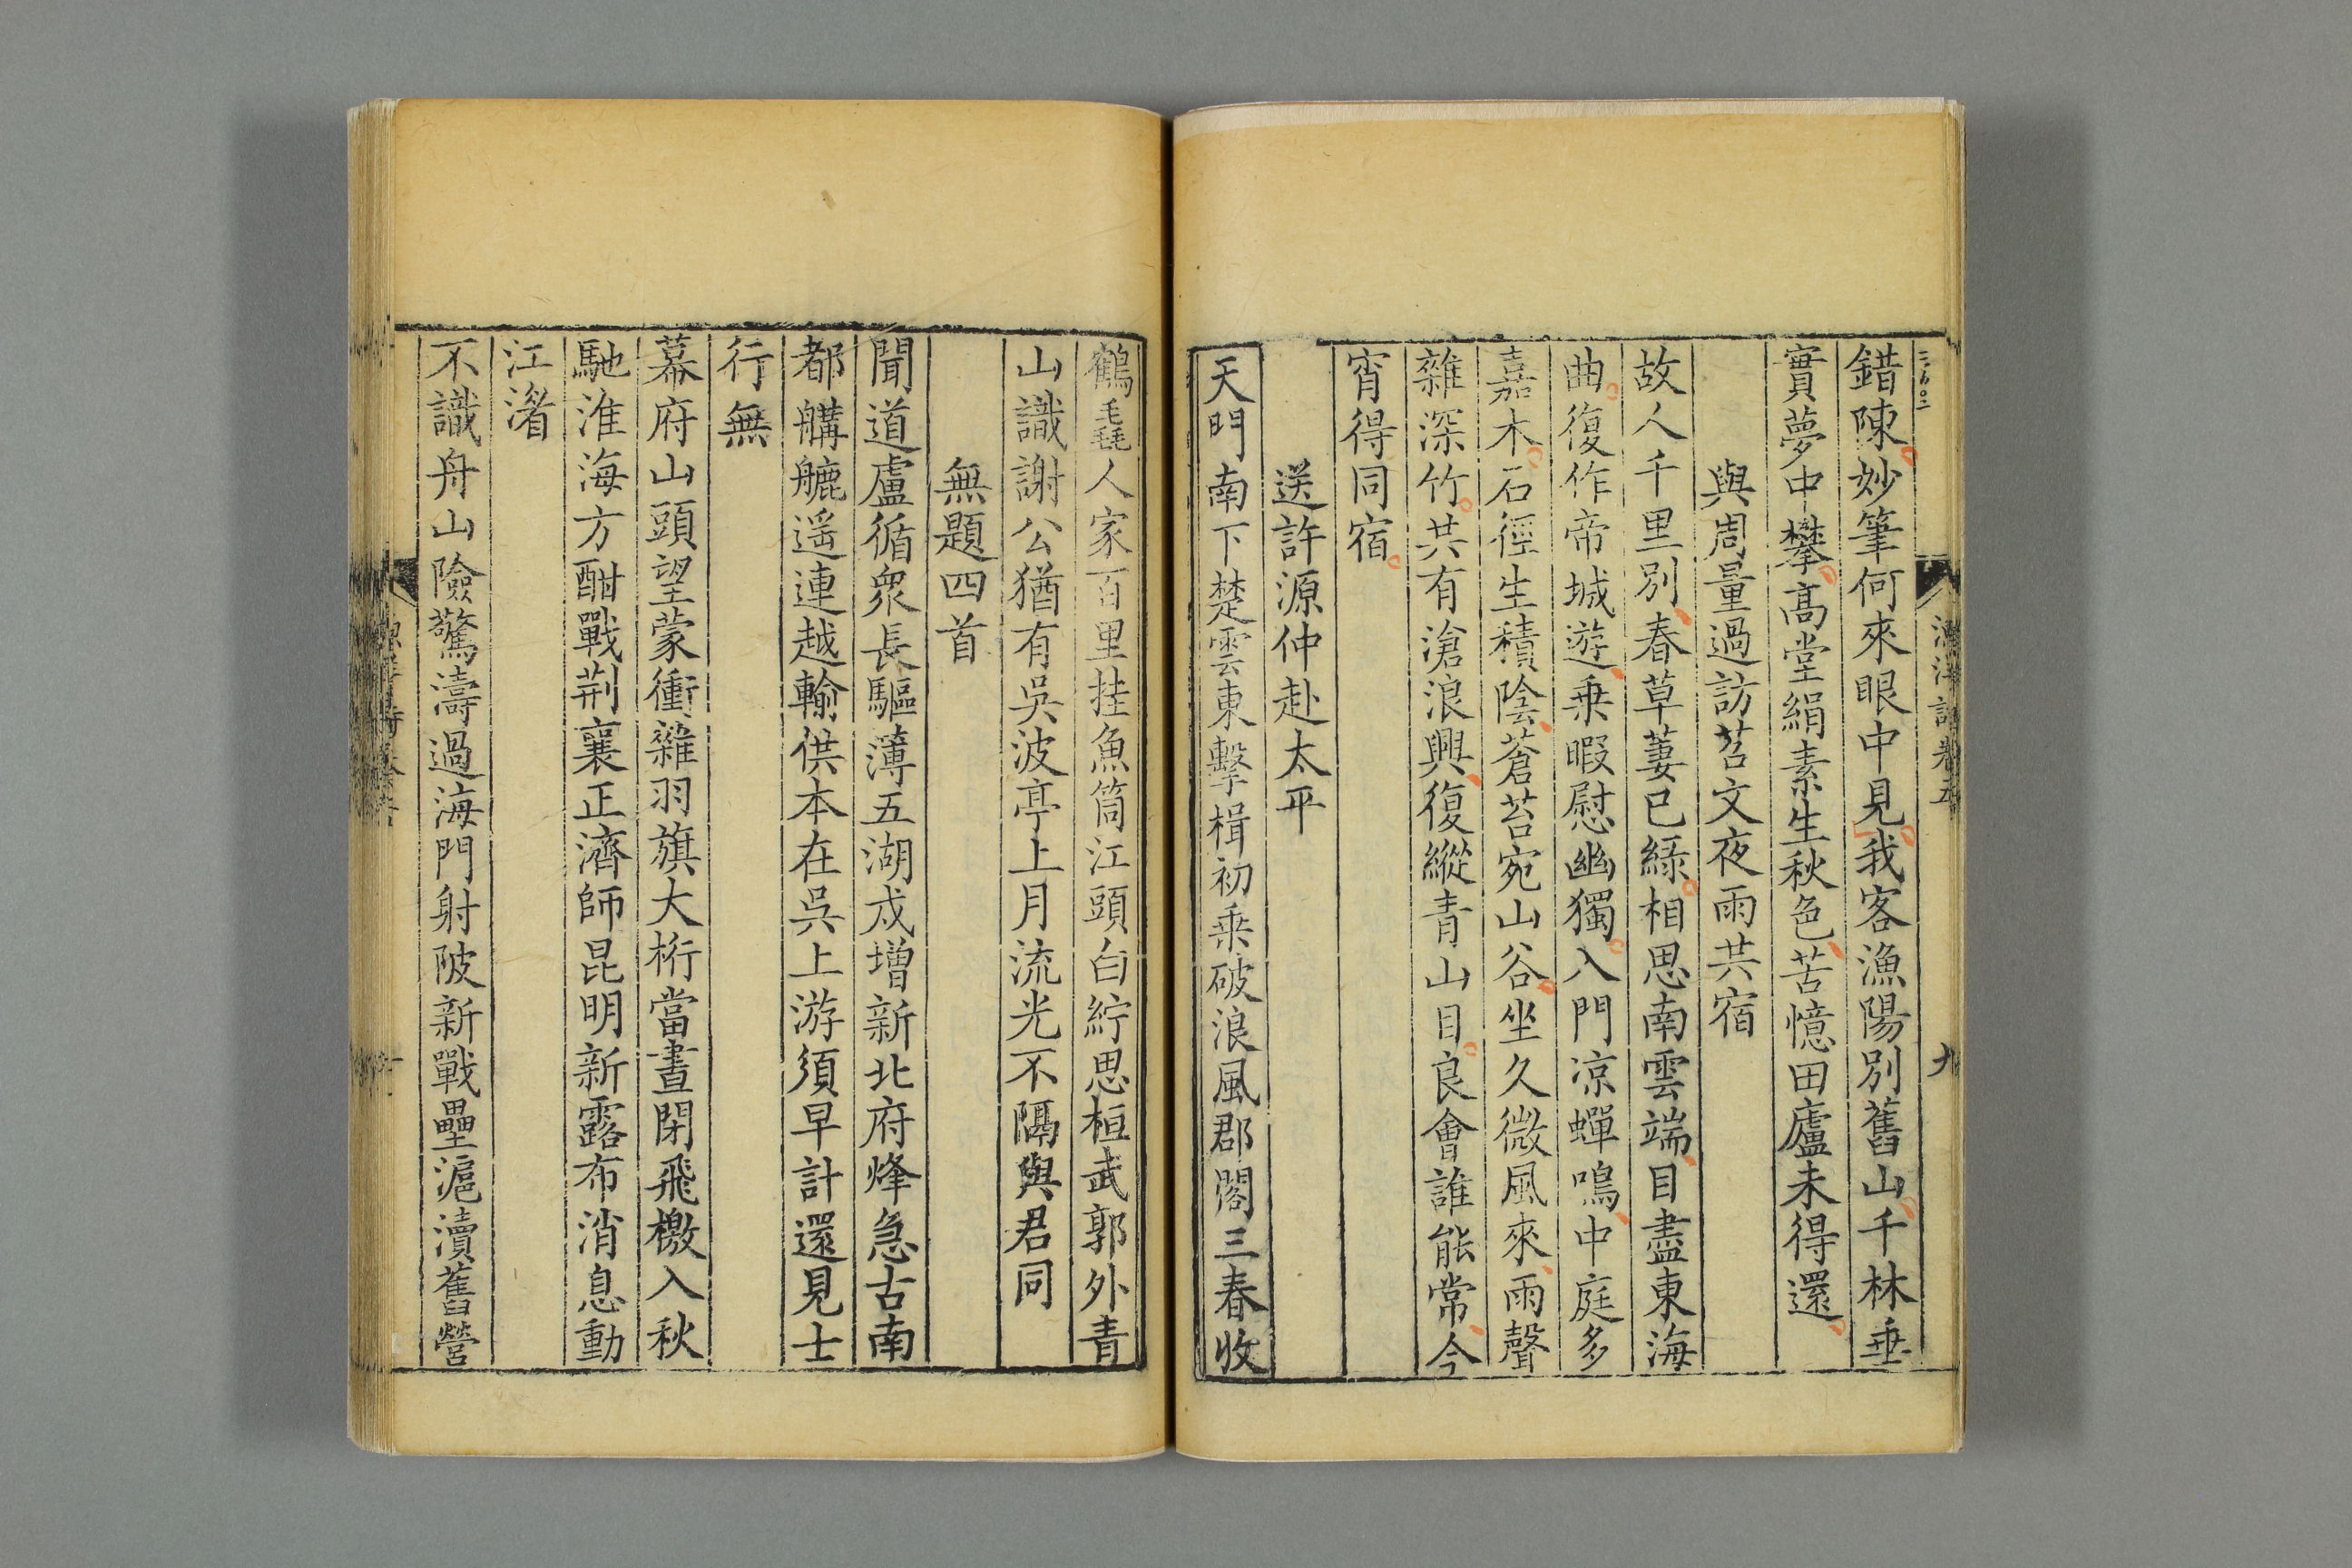 錯陳妙筆何來眼中見我客漁陽別舊山千林垂
實夢中攀高堂絹素生秋色苦憶田廬未得還
與周量過訪苕文夜雨共宿
故人千里別春草萋已綠相思南雲端目盡東海
曲復作帝城遊乗暇慰幽獨入門凉蟬鳴中庭多
嘉木石徑生積陰蒼苔宛山谷坐久微風來雨聲
雜深竹共有滄浪興復縱青山目良會誰能常今
宵得同宿
送許源仲赴太平
天門南下楚雲東擊楫初乗破浪風郡閣三春收
鶴毳人家百里挂魚筒江頭白紵思桓武郭外青
山識謝公猶有吳波亭上月流光不隔與君同
無題四首
聞道盧循衆長驅薄五湖戍增新北府烽急古南
都艜艫遥連越輸供本在吳上游須早計還見士
行無
幕府山頭望蒙衝雜羽旗大桁當晝閉飛檄入秋
馳淮海方酣戰荆襄正濟師昆明新露布消息動
江渚
不識舟山險驚濤過海門射陂新戰壘滬瀆舊營